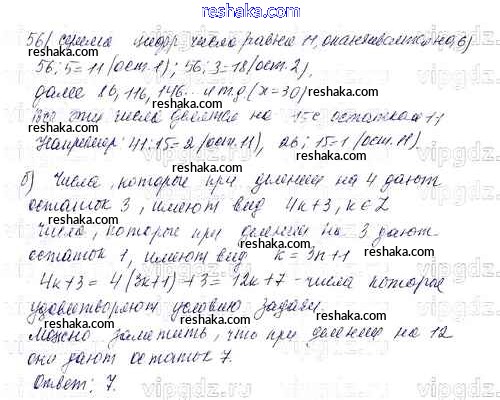 reshaka.com
56/ сумма цифр числа равна 11, оканчивается на 6)
56:5=11 (ост.1); 56:3=18 (ост.2),
далее 86, 116, 146... и т.д. (x=30)
Все эти числа делятся на 15 с остатком 11
Например: 41:15=2 (ост.11), 26:15=1 (ост.11).
б) Числа, которые при делении на 4 дают
остаток 3, имеют вид 4k+3, k∈Z
числа, которые при делении на 3 дают
остаток 1, имеют вид k=3n+1
4k+3=4(3n+1)+3=12k+7 - числа которые
удовлетворяют условию задачи
можно заметить, что при делении на 12
они дают остаток 7.
Ответ: 7.